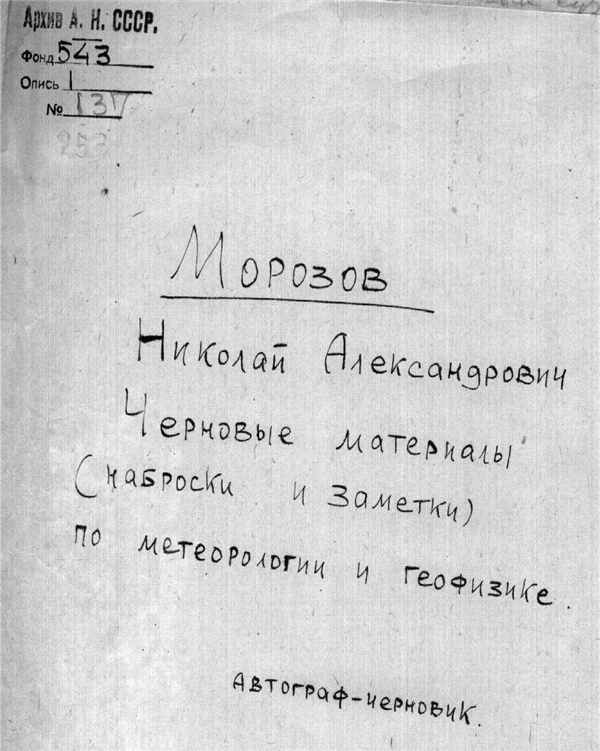 Архив А. Н. СССР.
Фонд 543
Опись 1
№ 137
253
Морозов
Николай Александрович
Черновые материалы
(наброски и заметки)
по метеорологии и геофизике.
Автограф-черновик.